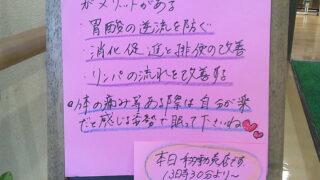 がメリットがある
・胃酸の逆流を防ぐ
・消化促進と排便の改善
・リンパの流れを改善する
体の痛み等ある際は自分が楽
だと感じる姿勢で眠って下さいね
本日
13時30分より〜